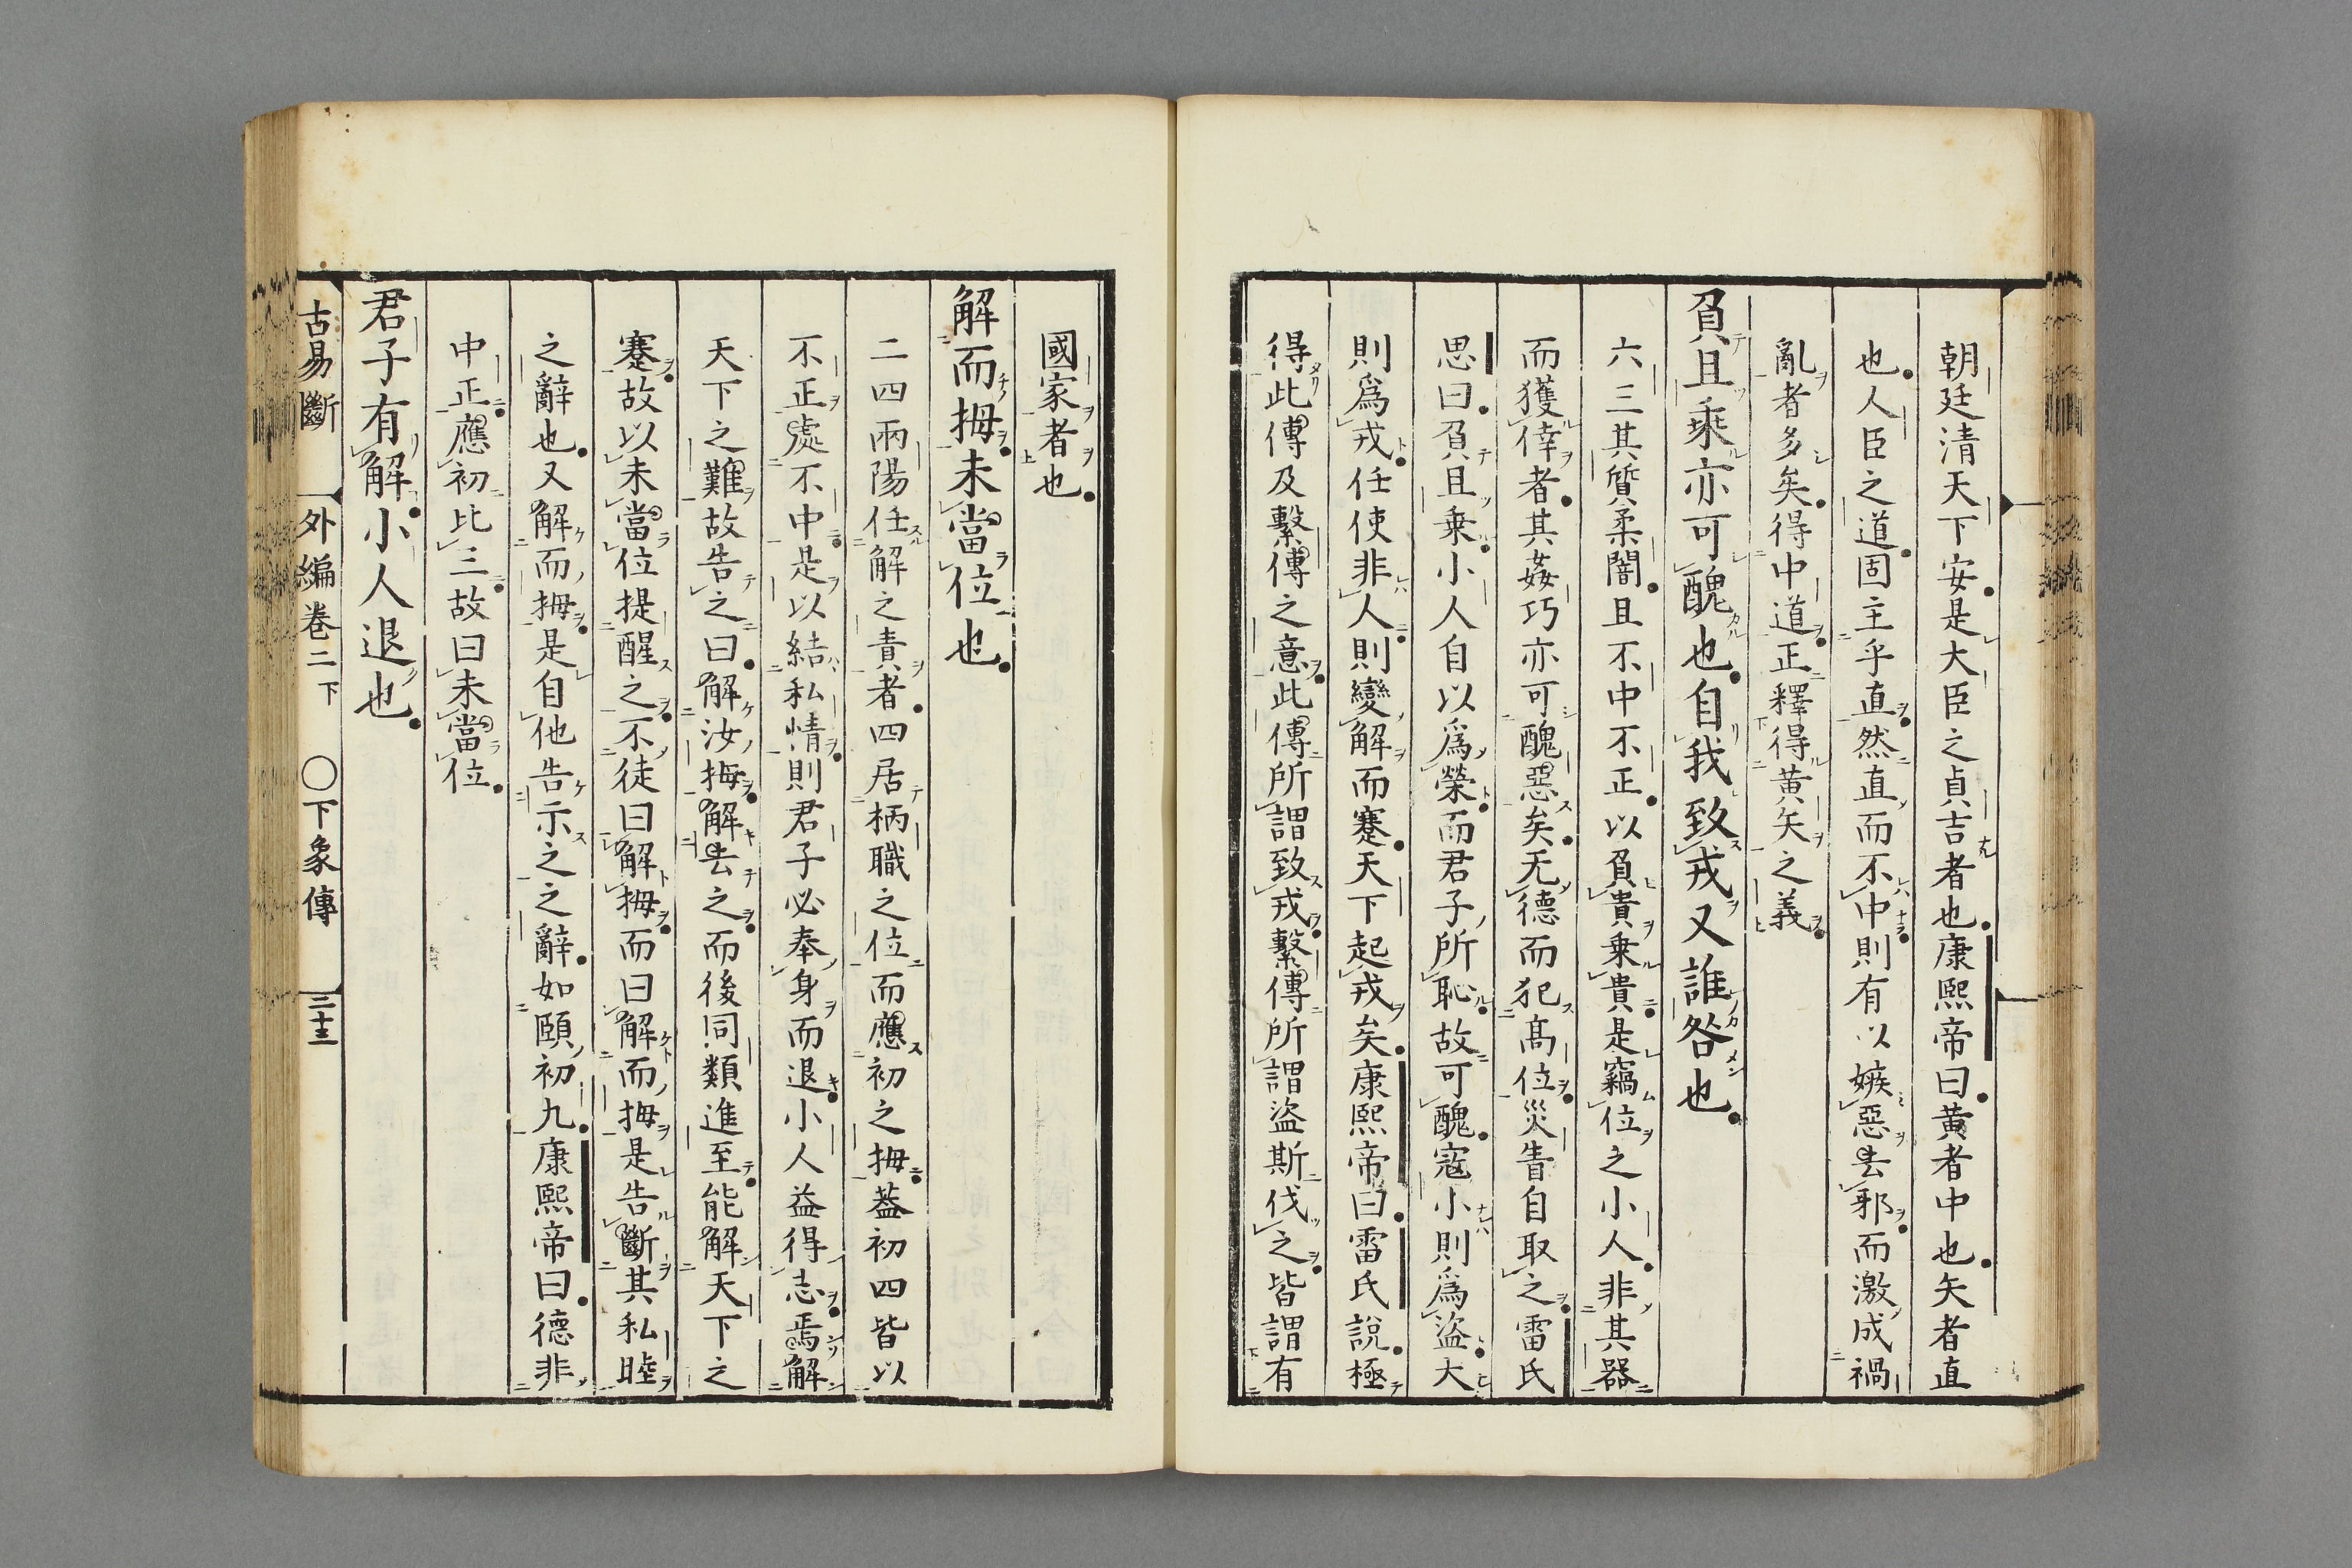 朝廷清天下安是大臣之貞吉者也康熙帝曰黃者中也矢者直
也人臣之道固主乎直然直而不中則有以嫉惡去邪而激成禍
亂者多矣得中道正釋得黃矢之義
負且乘亦可醜也自我致戎又誰咎也
六三其質柔闇且不中不正以負貴乗貴是竊位之小人非其器
而獲倖者其姦巧亦可醜惡矣无德而犯高位災眚自取之雷氏
思曰負且乗小人自以爲榮而君子所恥故可醜寇小則爲盜大
則爲戎任使非人則變解而蹇天下起戎矣康熙帝曰雷氏說極
得此傳及繫傳之意此傳所謂致戎繫傳所謂盜斯伐之皆謂有
國家者也
解而拇未當位也
二四兩陽任解之責者四居柄職之位而應初之拇蓋初四皆以
不正處不中是以結私情則君子必奉身而退小人益得志焉解
天下之難故告之曰解汝拇解去之而後同類進至能解天下之
蹇故以未當位提醒之不徒曰解拇而曰解而拇是告斷其私睦
之辭也又解而拇是自他告示之之辭如頤初九康熙帝曰德非
中正應初比三故曰未當位
君子有解小人退也
古易斷 外編卷二下 ○下象傳 三十三